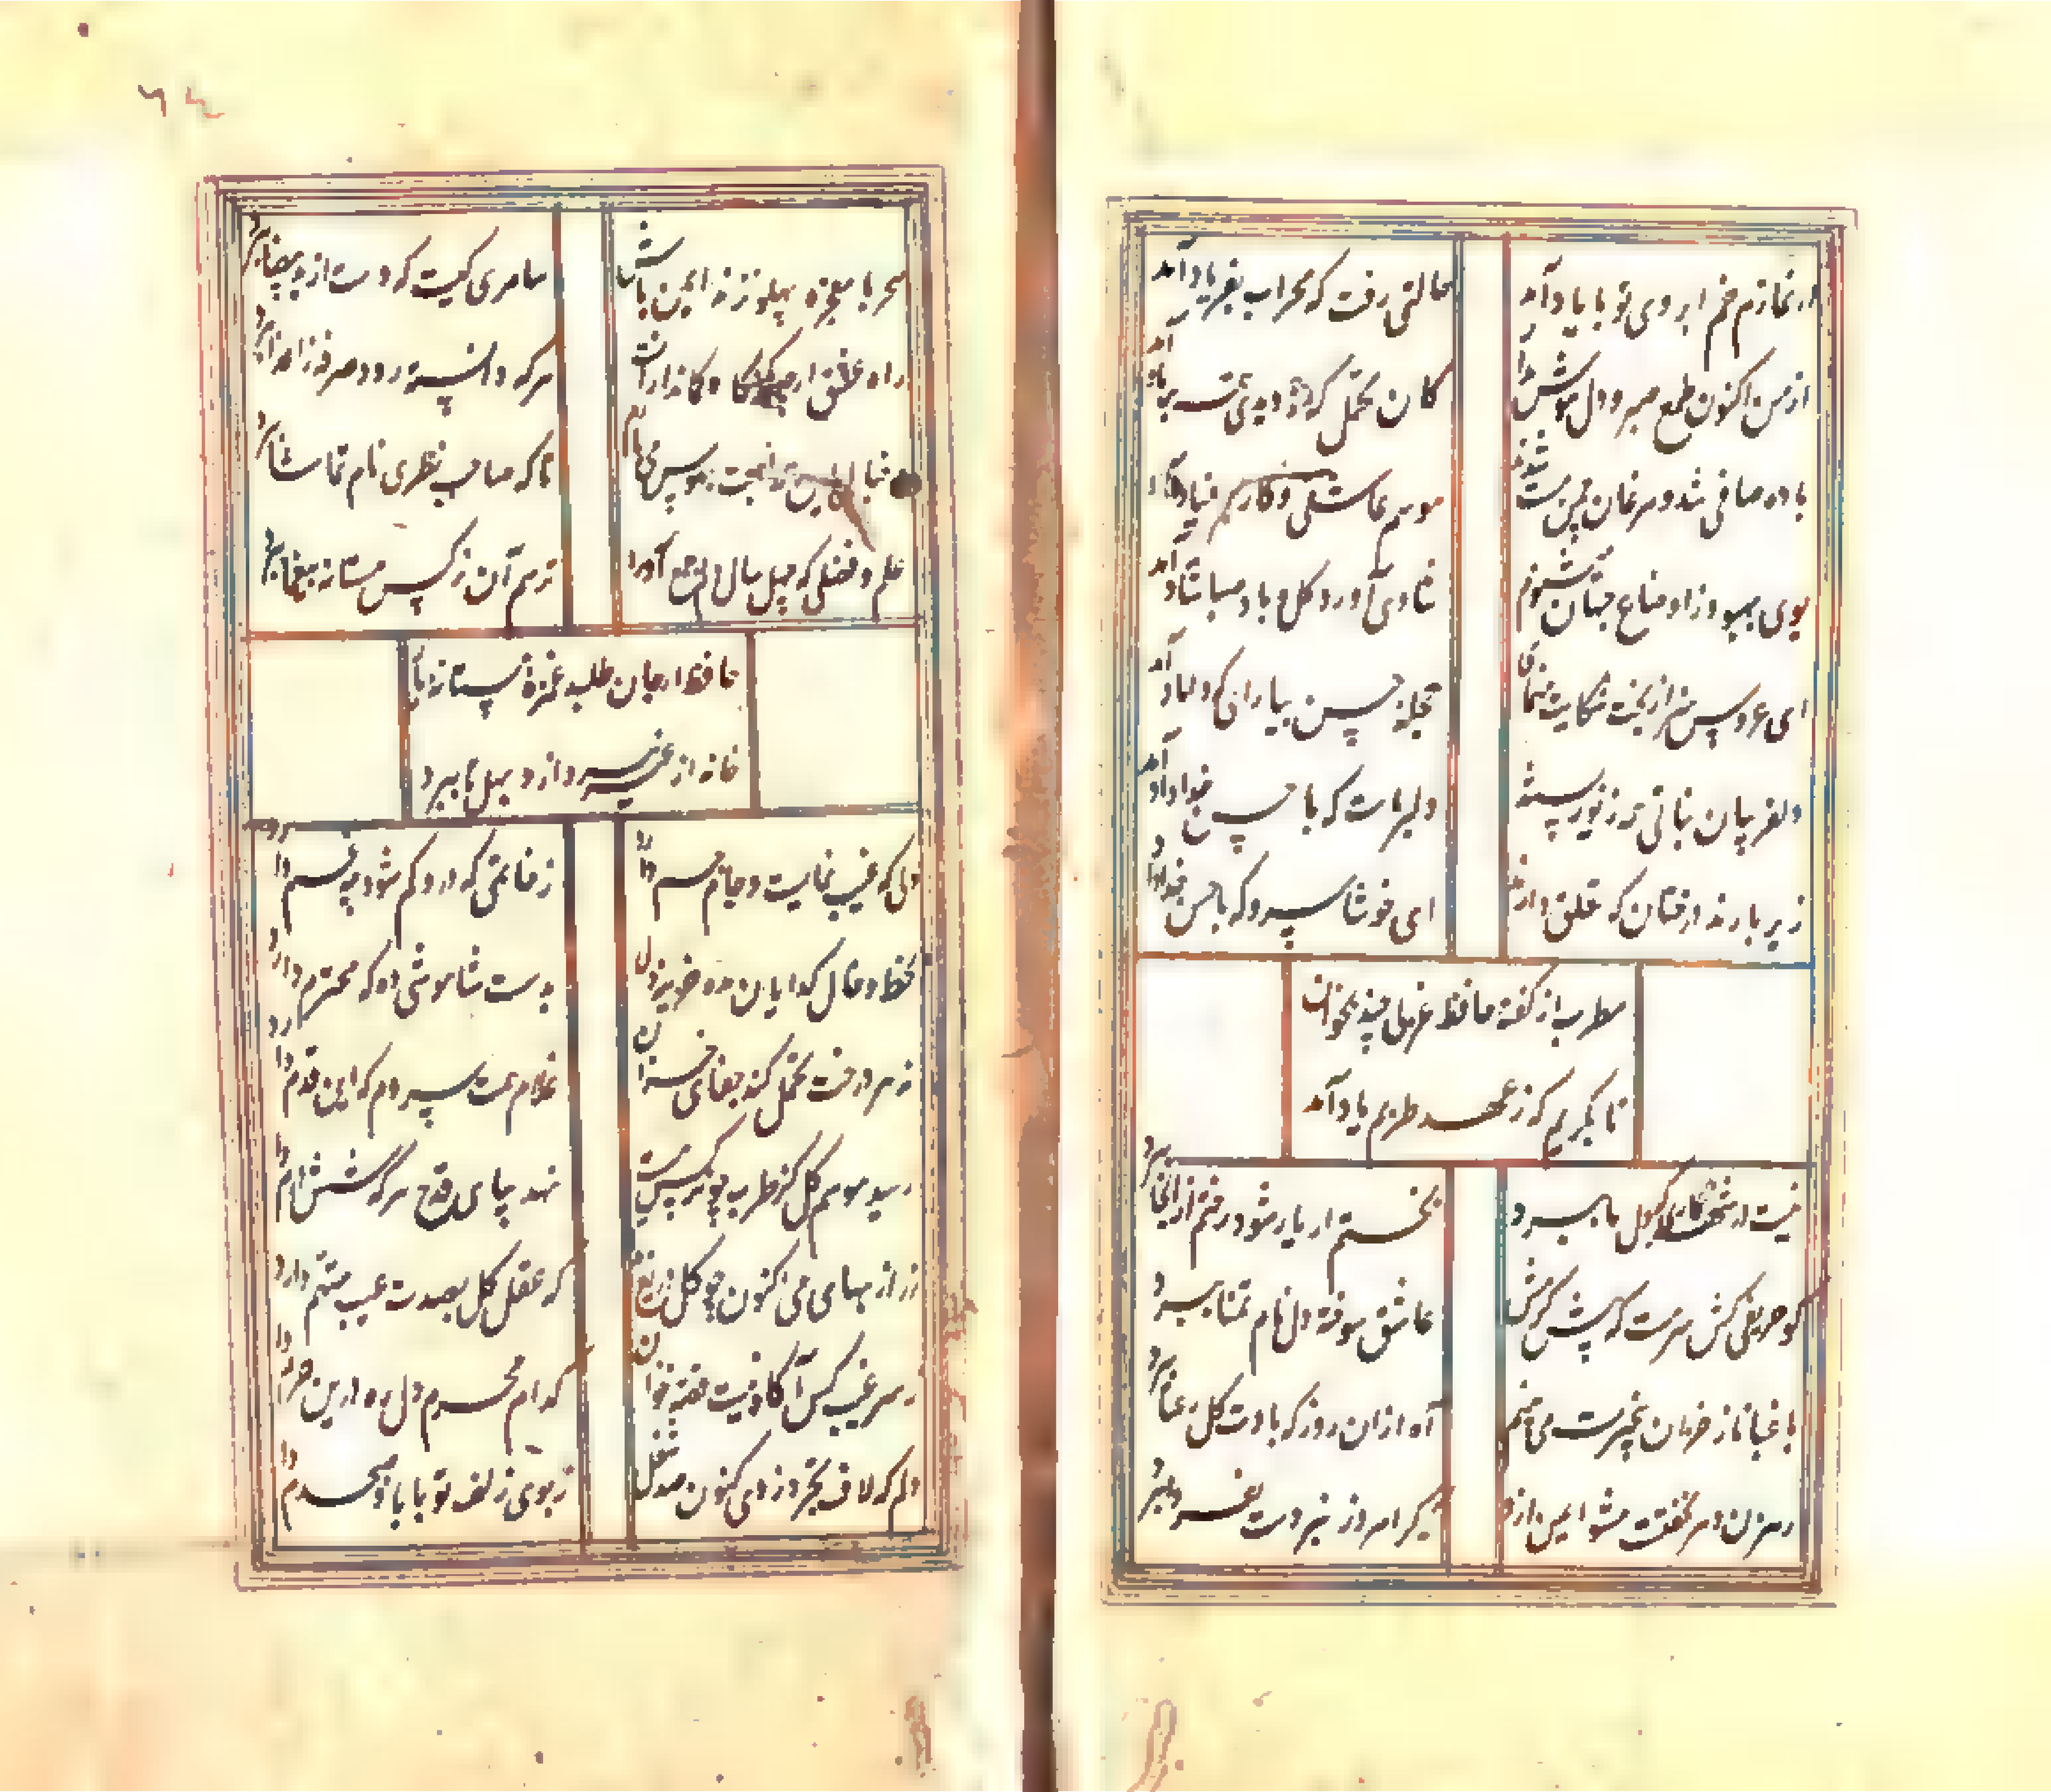 در نمازم خم ابروی تو با یاد آمد
حالتی رفت که محراب بفریاد آمد
از من اکنون طمع صبر و دل و هوش مدار
کان تحمل که تو دیدی همه بر باد آمد
باده صافی شد و مرغان چمن مست شدند
موسم عاشقی و کار بنیاد آمد
بوی بهبود ز اوضاع جهان می شنوم
شادی آورد گل و باد صبا شاد آمد
ای عروس هنر از بخت شکایت منمای
حجله حسن بیارای که داماد آمد
دلفریبان نباتی همه زیور بستند
دلبر ماست که با حسن خداداد آمد
زیر بارند درختان که تعلق دارند
ای خوشا سرو که با حسن خداداد
مطرب از گفته حافظ غزلی چند بخوان
تا بگریم که ز عهد طربم یاد آمد
نیست در شهر نگاری که دل ما ببرد
بختم ار یار شود رختم از اینجا ببرد
کو حریفی کش سرمست که پیش کرمش
عاشق سوخته دل نام تمنا ببرد
باغبانا ز خزان بیخبرت می بینم
آه از آن روز که بادت گل رعنا ببرد
رهزن دهر نخفتست مشو ایمن ازو
گر امروز نبردست که فردا ببرد
سحر با معجزه پهلو نزند ایمن باش
سامری کیست که دست از ید بیضا ببرد
راه عشق ار چه کمینگاه کماندارانست
هر که دانسته رود صرفه ز اعدا ببرد
خیال این همه لعبت بهوس می بازم
تا که صاحب نظری نام تماشا ببرد
علم و فضلی که چهل سال دلم جمع آورد
ترسم آن نرگس مستانه بیغما ببرد
حافظ ار جان طلبد غمزه مستانه یار
خانه از غیر بپرداز و بهل تا ببرد
دلی که غیب نمایست و جام جم دارد
ز خاتمی که درو گم شود چه غم دارد
بخط و خال گدایان مده خزینه دل
بدست شاهوشی ده که محترم دارد
نه هر درخت تحمل کند جفای خزان
غلام همت سروم که این قدم دارد
رسید موسم گل کز طرب چو نرگس مست
نهد بپای قدح هر که شش درم دارد
زر از بهای می اکنون چو گل دریغ مدار
که عقل کل بصدت عیب متهم دارد
ز سر غیب کس آگاه نیست قصه مخوان
کدام محرم دل ره درین حرم دارد
دلم که لاف تجرد زدی کنون صد شغل
ز بوی زلف تو با باد صبحدم دارد